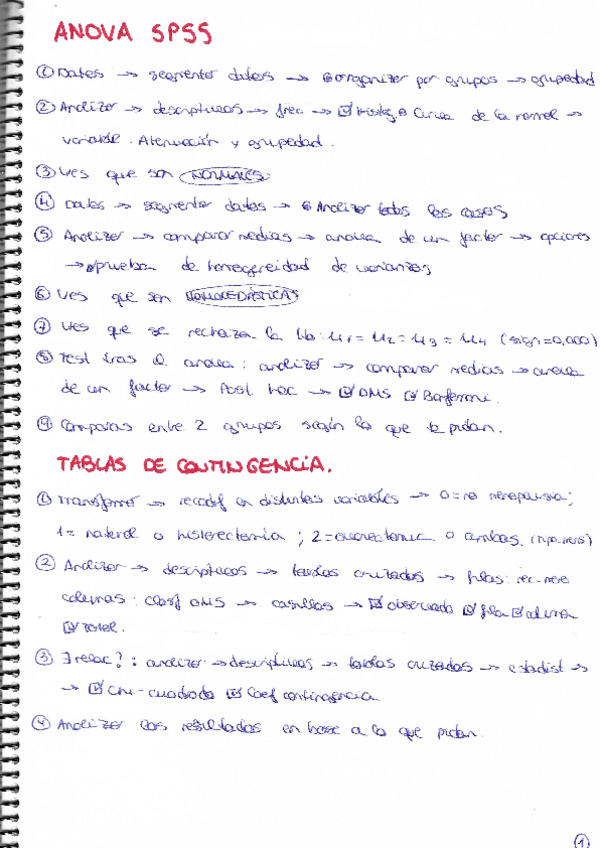 ANOVA SPSS
① Datos → segmentar datos → ⊙ organizar por grupos → grupedad
② Analizar → descriptivos → frec → ☑ Histog ⊙ Curva de la normal →
variable: Atenuación y grupedad.
③ Ves que son NORMALES.
④ Datos → segmentar datos → ⊙ Analizar todos los casos
⑤ Analizar → comparar medias → anova de un factor → opciones
→ prueba de homogeneidad de varianzas
⑥ Ves que son HOMOCEDÁSTICAS
⑦ Ves que se rechaza la Ho: μ1 = μ2 = μ3 = μ4 (sign=0,000)
⑧ Test tras el anova: analizar → comparar medias → anova
de un factor → Post hoc → ☑ DMS ☑ Bonferroni.
⑨ Comparas entre 2 grupos según lo que te pidan.
TABLAS DE CONTINGENCIA.
① Transformar → recodif en distintas variables → 0 = no menopausia;
1 = natural o histerectomia; 2 = ooforectomia o ambas.
② Analizar → descriptivos → tablas cruzadas → filas: rec-meno
columnas: clasif OMS → casillas → ☑ observado ☑ fila ☑ columna
☑ total.
③ ∃ relac?: analizar → descriptivos → tablas cruzadas → estadist →
→ ☑ Chi-cuadrado ☑ Coef contingencia
④ Analizar los resultados en base a lo que pidan.
1